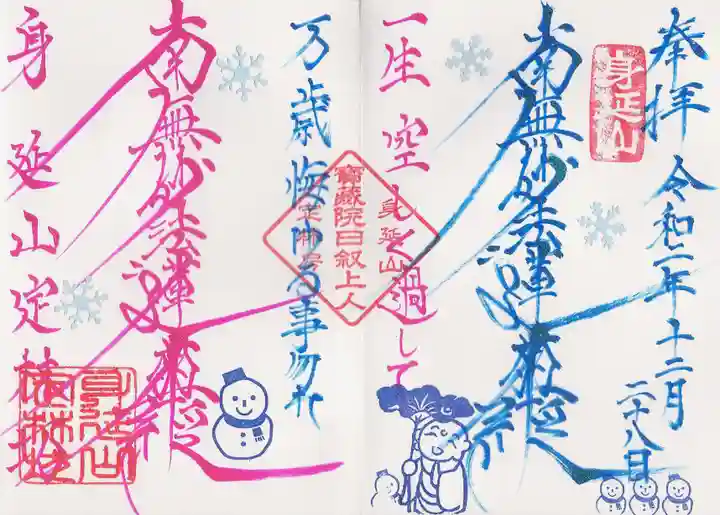 奉拝
令和二年十二月
二十八日
身延山
南無妙法蓮華経
一生空しく過して
身延山
寶蔵院日叙上人
万歳悔ゆる事勿れ
南無妙法蓮華経
身延山定林坊
身延山
定林坊